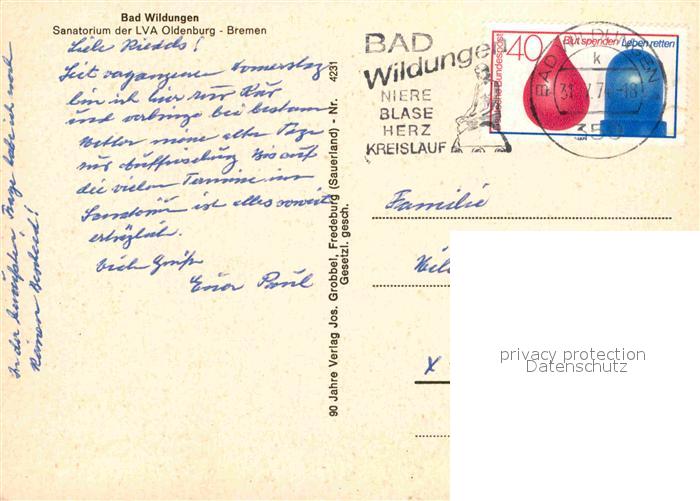 Bad Wildungen
Sanatorium der LVA Oldenburg - Bremen
Liebe Riedels!
Seit vergangenem Donnerstag
bin ich hier zur Kur
und verbringe bei bestem
Wetter meine alten Tage
mit Auffrischung. Bis auf
die vielen Termine im
Sanatorium ist alles soweit
erträglich.
Viele Grüße
Euer Paul
In der bewußten Frage habe ich noch
keinen Bescheid!
90 Jahre Verlag Jos. Grobbel, Fredeburg (Sauerland) - Nr. 4231
Gesetzl. gesch.
BAD
Wildungen
NIERE
BLASE
HERZ
KREISLAUF
Deutsche Bundespost
40
Blut spenden Leben retten
BAD WILDUNGEN
k
31.7.74-18
359
Familie
X
privacy protection
Datenschutz